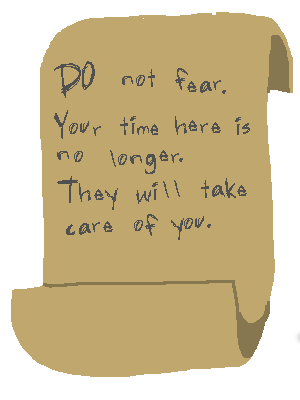 DO not fear.
Your time here is
no longer.
They will take
care of you.